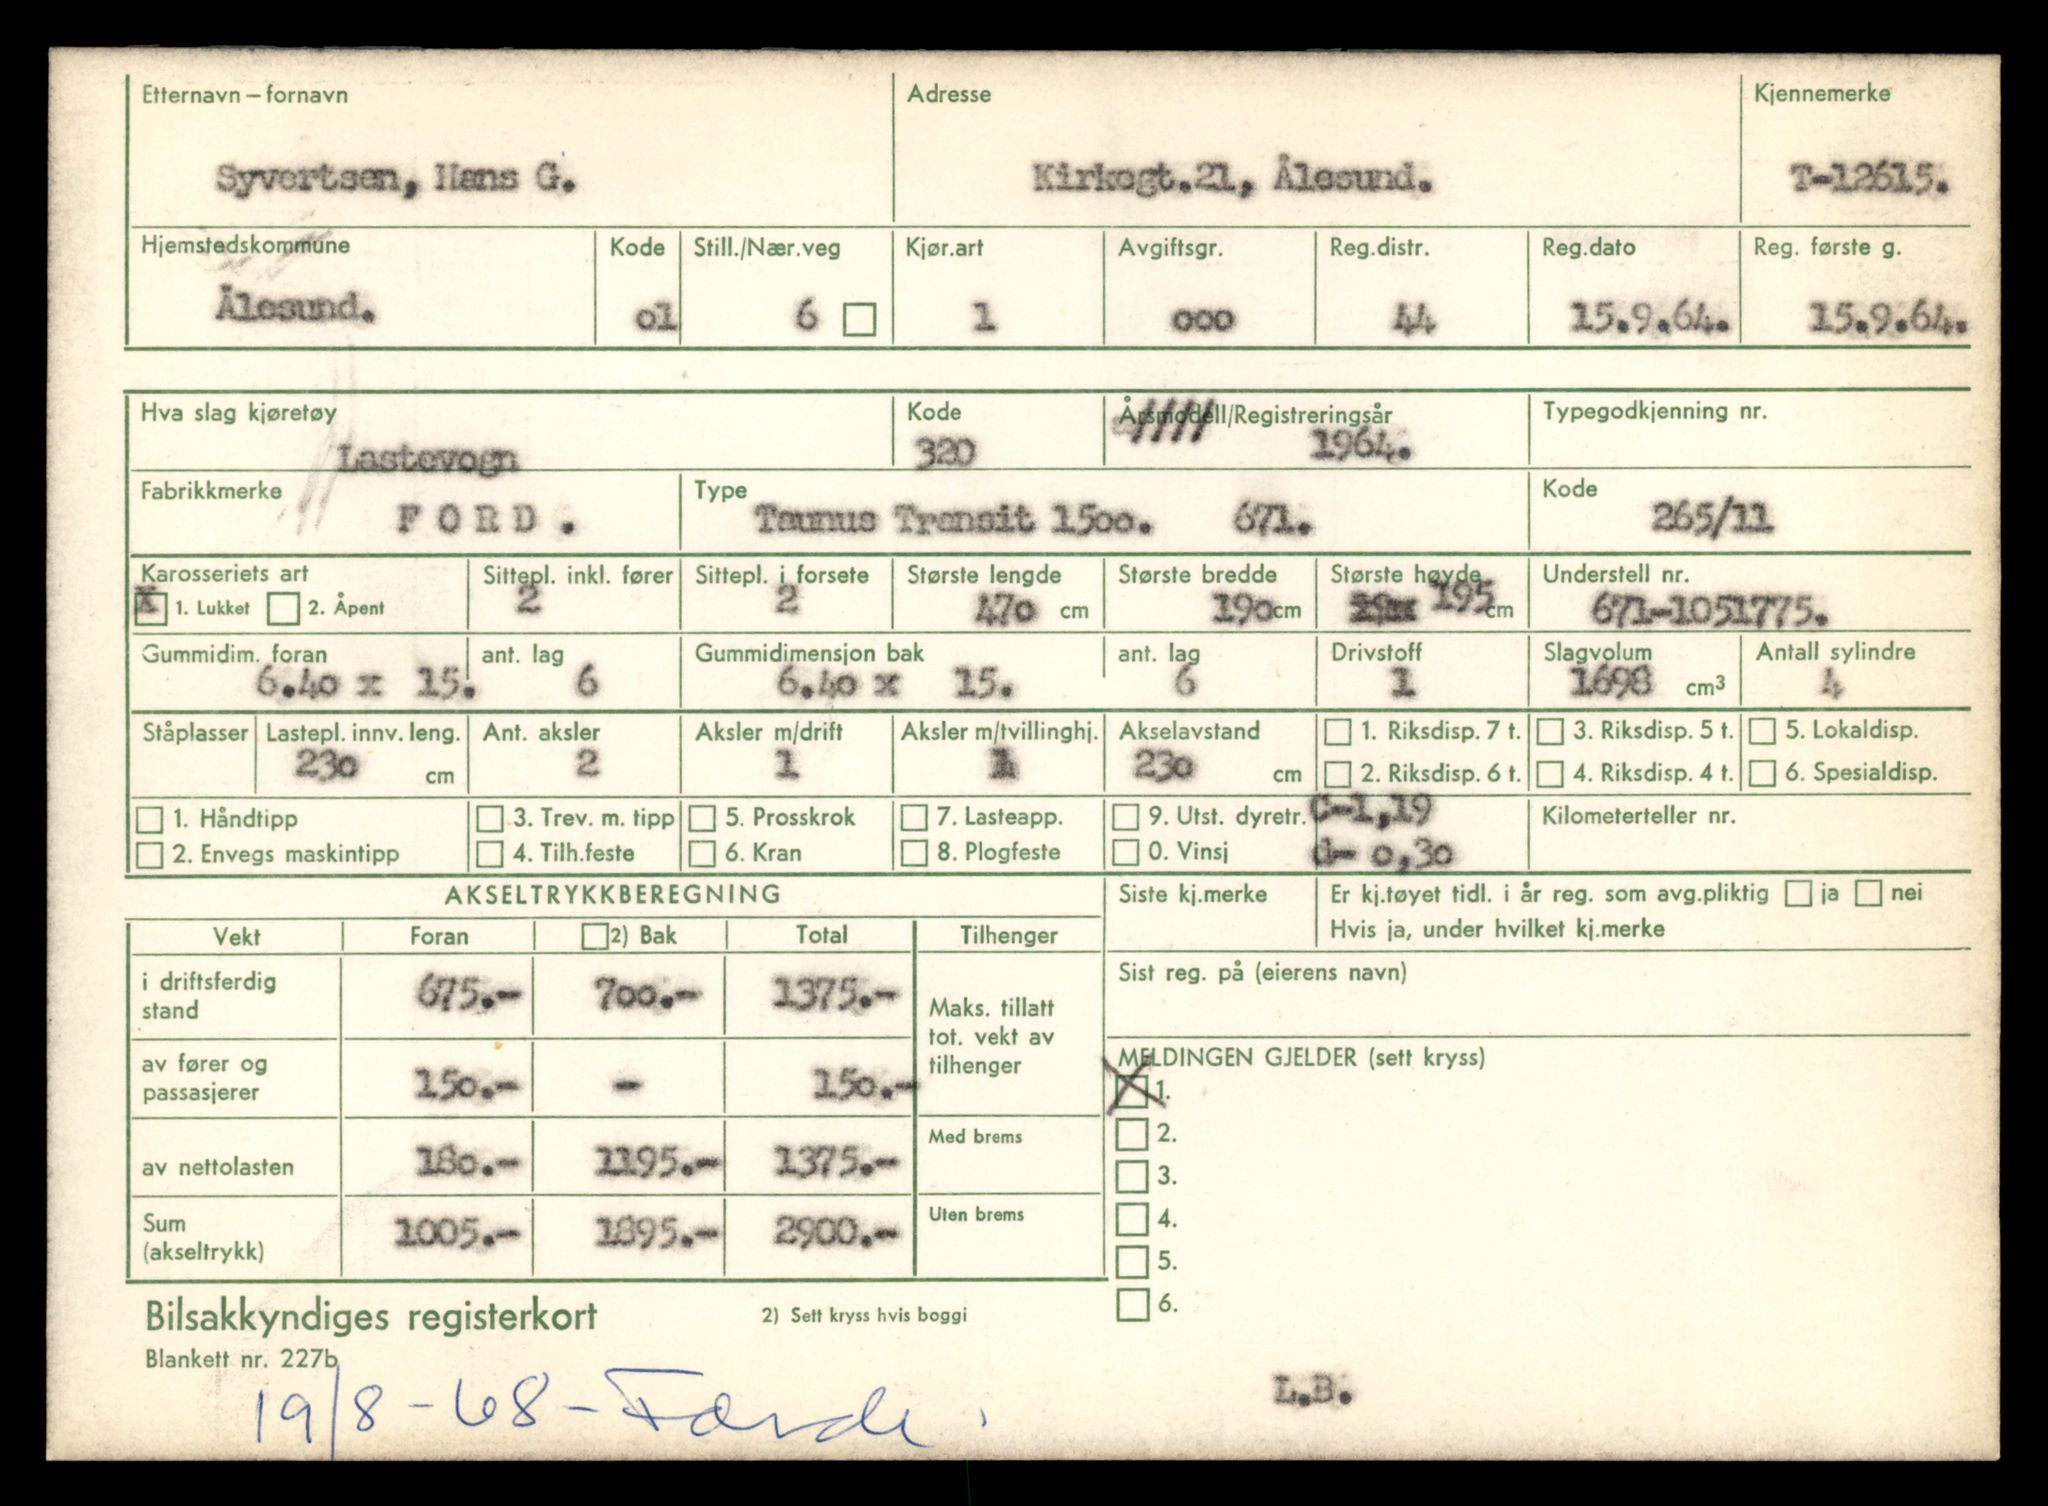 Etternavn – fornavn Adresse Kjennemerke
Syvertsen, Hans G. Kirkegt.21, Ålesund. T-12615.
Hjemstedskommune Kode Still./Nær.veg Kjør.art Avgiftsgr. Reg.distr. Reg.dato Reg. første g.
Ålesund. o1 6 1 ooo 44 15.9.64. 15.9.64.
Hva slag kjøretøy Kode Årsmodell/Registreringsår Typegodkjenning nr.
Lastevogn 320 //// 1964.
Fabrikkmerke Type Kode
FORD. Taunus Transit 15oo. 671. 265/11
Karosseriets art Sittepl. inkl. fører Sittepl. i forsete Største lengde Største bredde Største høyde Understell nr.
x 1. Lukket 2. Åpent 2 2 47o cm 19o cm 195 cm 671-1051775.
Gummidim. foran ant. lag Gummidimensjon bak ant. lag Drivstoff Slagvolum Antall sylindre
6.4o x 15. 6 6.4o x 15. 6 1 1698 cm³ 4
Ståplasser Lastepl. innv. leng. Ant. aksler Aksler m/drift Aksler m/tvillinghj. Akselavstand 1. Riksdisp. 7 t. 3. Riksdisp. 5 t. 5. Lokaldisp.
23o cm 2 1 23o cm 2. Riksdisp. 6 t. 4. Riksdisp. 4 t. 6. Spesialdisp.
1. Håndtipp 3. Trev. m. tipp 5. Prosskrok 7. Lasteapp. 9. Utst. dyretr. C-1,19 Kilometerteller nr.
2. Envegs maskintipp 4. Tilh.feste 6. Kran 8. Plogfeste 0. Vinsj d- o,3o
AKSELTRYKKBEREGNING Siste kj.merke Er kj.tøyet tidl. i år reg. som avg.pliktig ja nei
Vekt Foran 2) Bak Total Tilhenger Hvis ja, under hvilket kj.merke
i driftsferdig stand 675.- 7oo.- 1375.- Maks. tillatt tot. vekt av tilhenger Sist reg. på (eierens navn)
av fører og passasjerer 15o.- - 15o.- MELDINGEN GJELDER (sett kryss)
X 1.
av nettolasten 18o.- 1195.- 1375.- Med brems 2.
3.
Sum (akseltrykk) 1005.- 1895.- 2900.- Uten brems 4.
5.
6.
Bilsakkyndiges registerkort 2) Sett kryss hvis boggi
Blankett nr. 227b
19/8-68 - Førde. L.B.